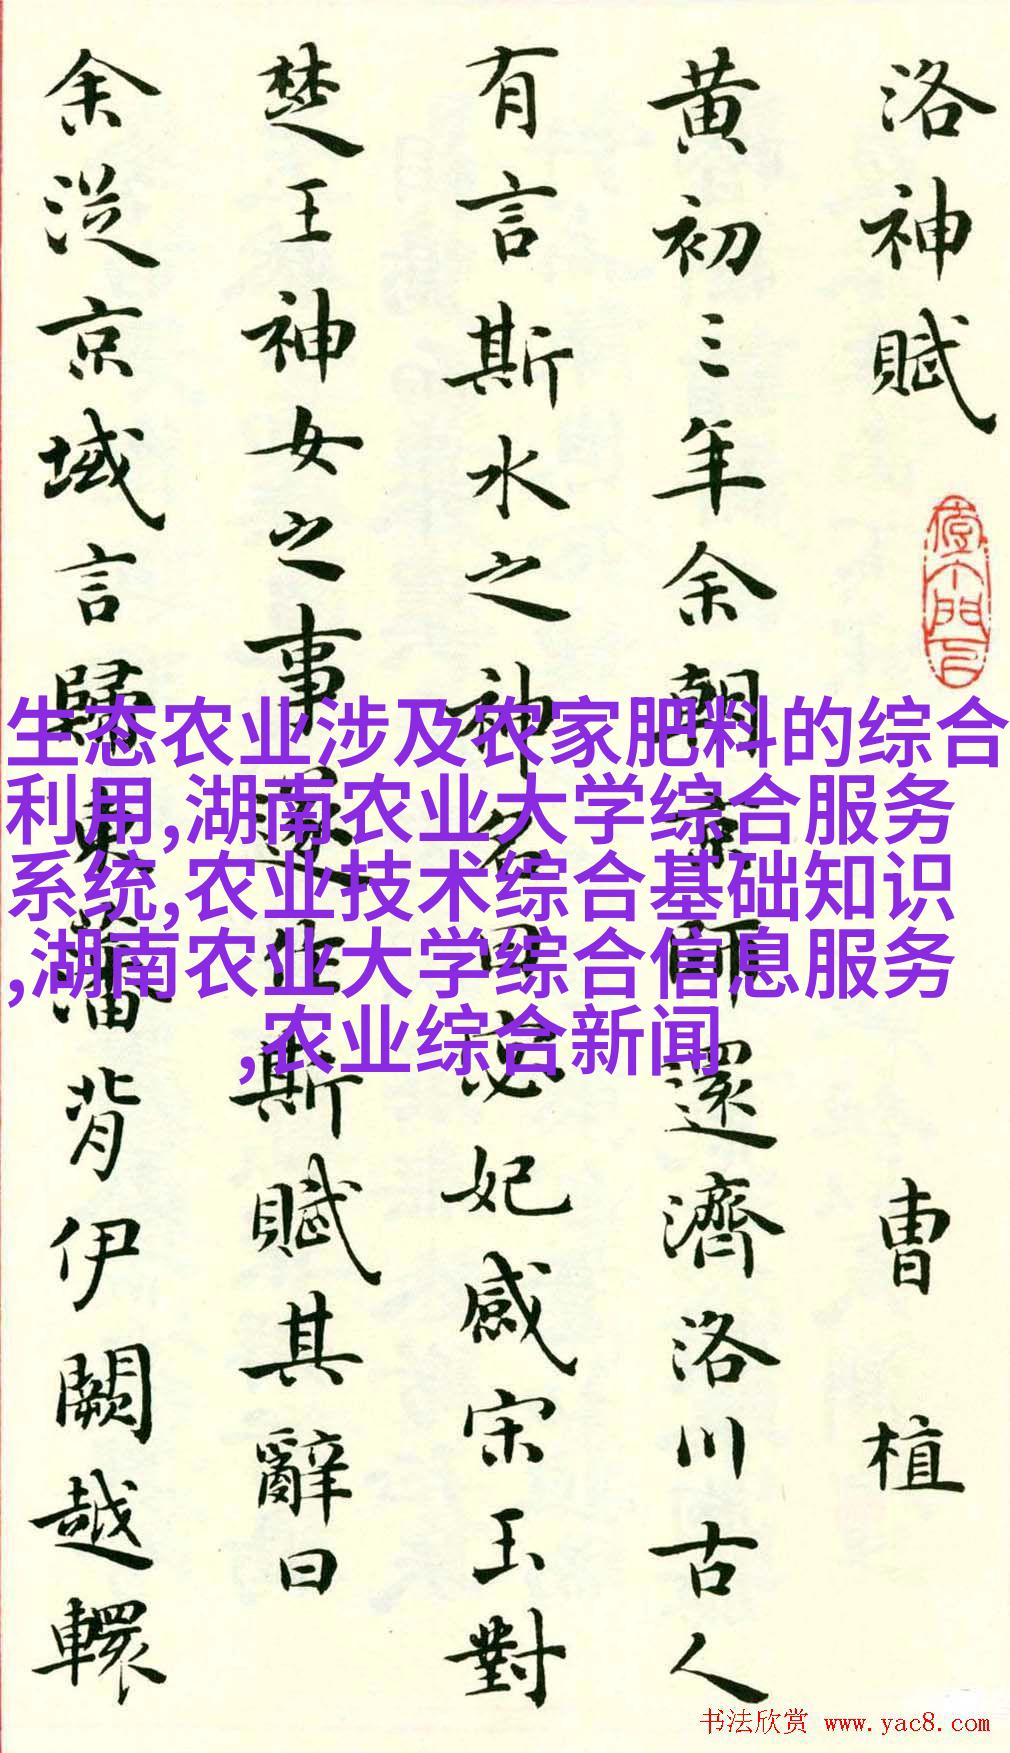 洛神賦 曹植
黄初三年余朝京師還濟洛川古人
有言斯水之神名曰宓妃感宋玉對
楚王神女之事遂作斯賦其辭曰
余從京域言歸東藩背伊闕越轘
生态农业涉及农家肥料的综合
利用,湖南农业大学综合服务
系统,农业技术综合基础知识
,湖南农业大学综合信息服务
,农业综合新闻
书法欣赏 www.yac8.com